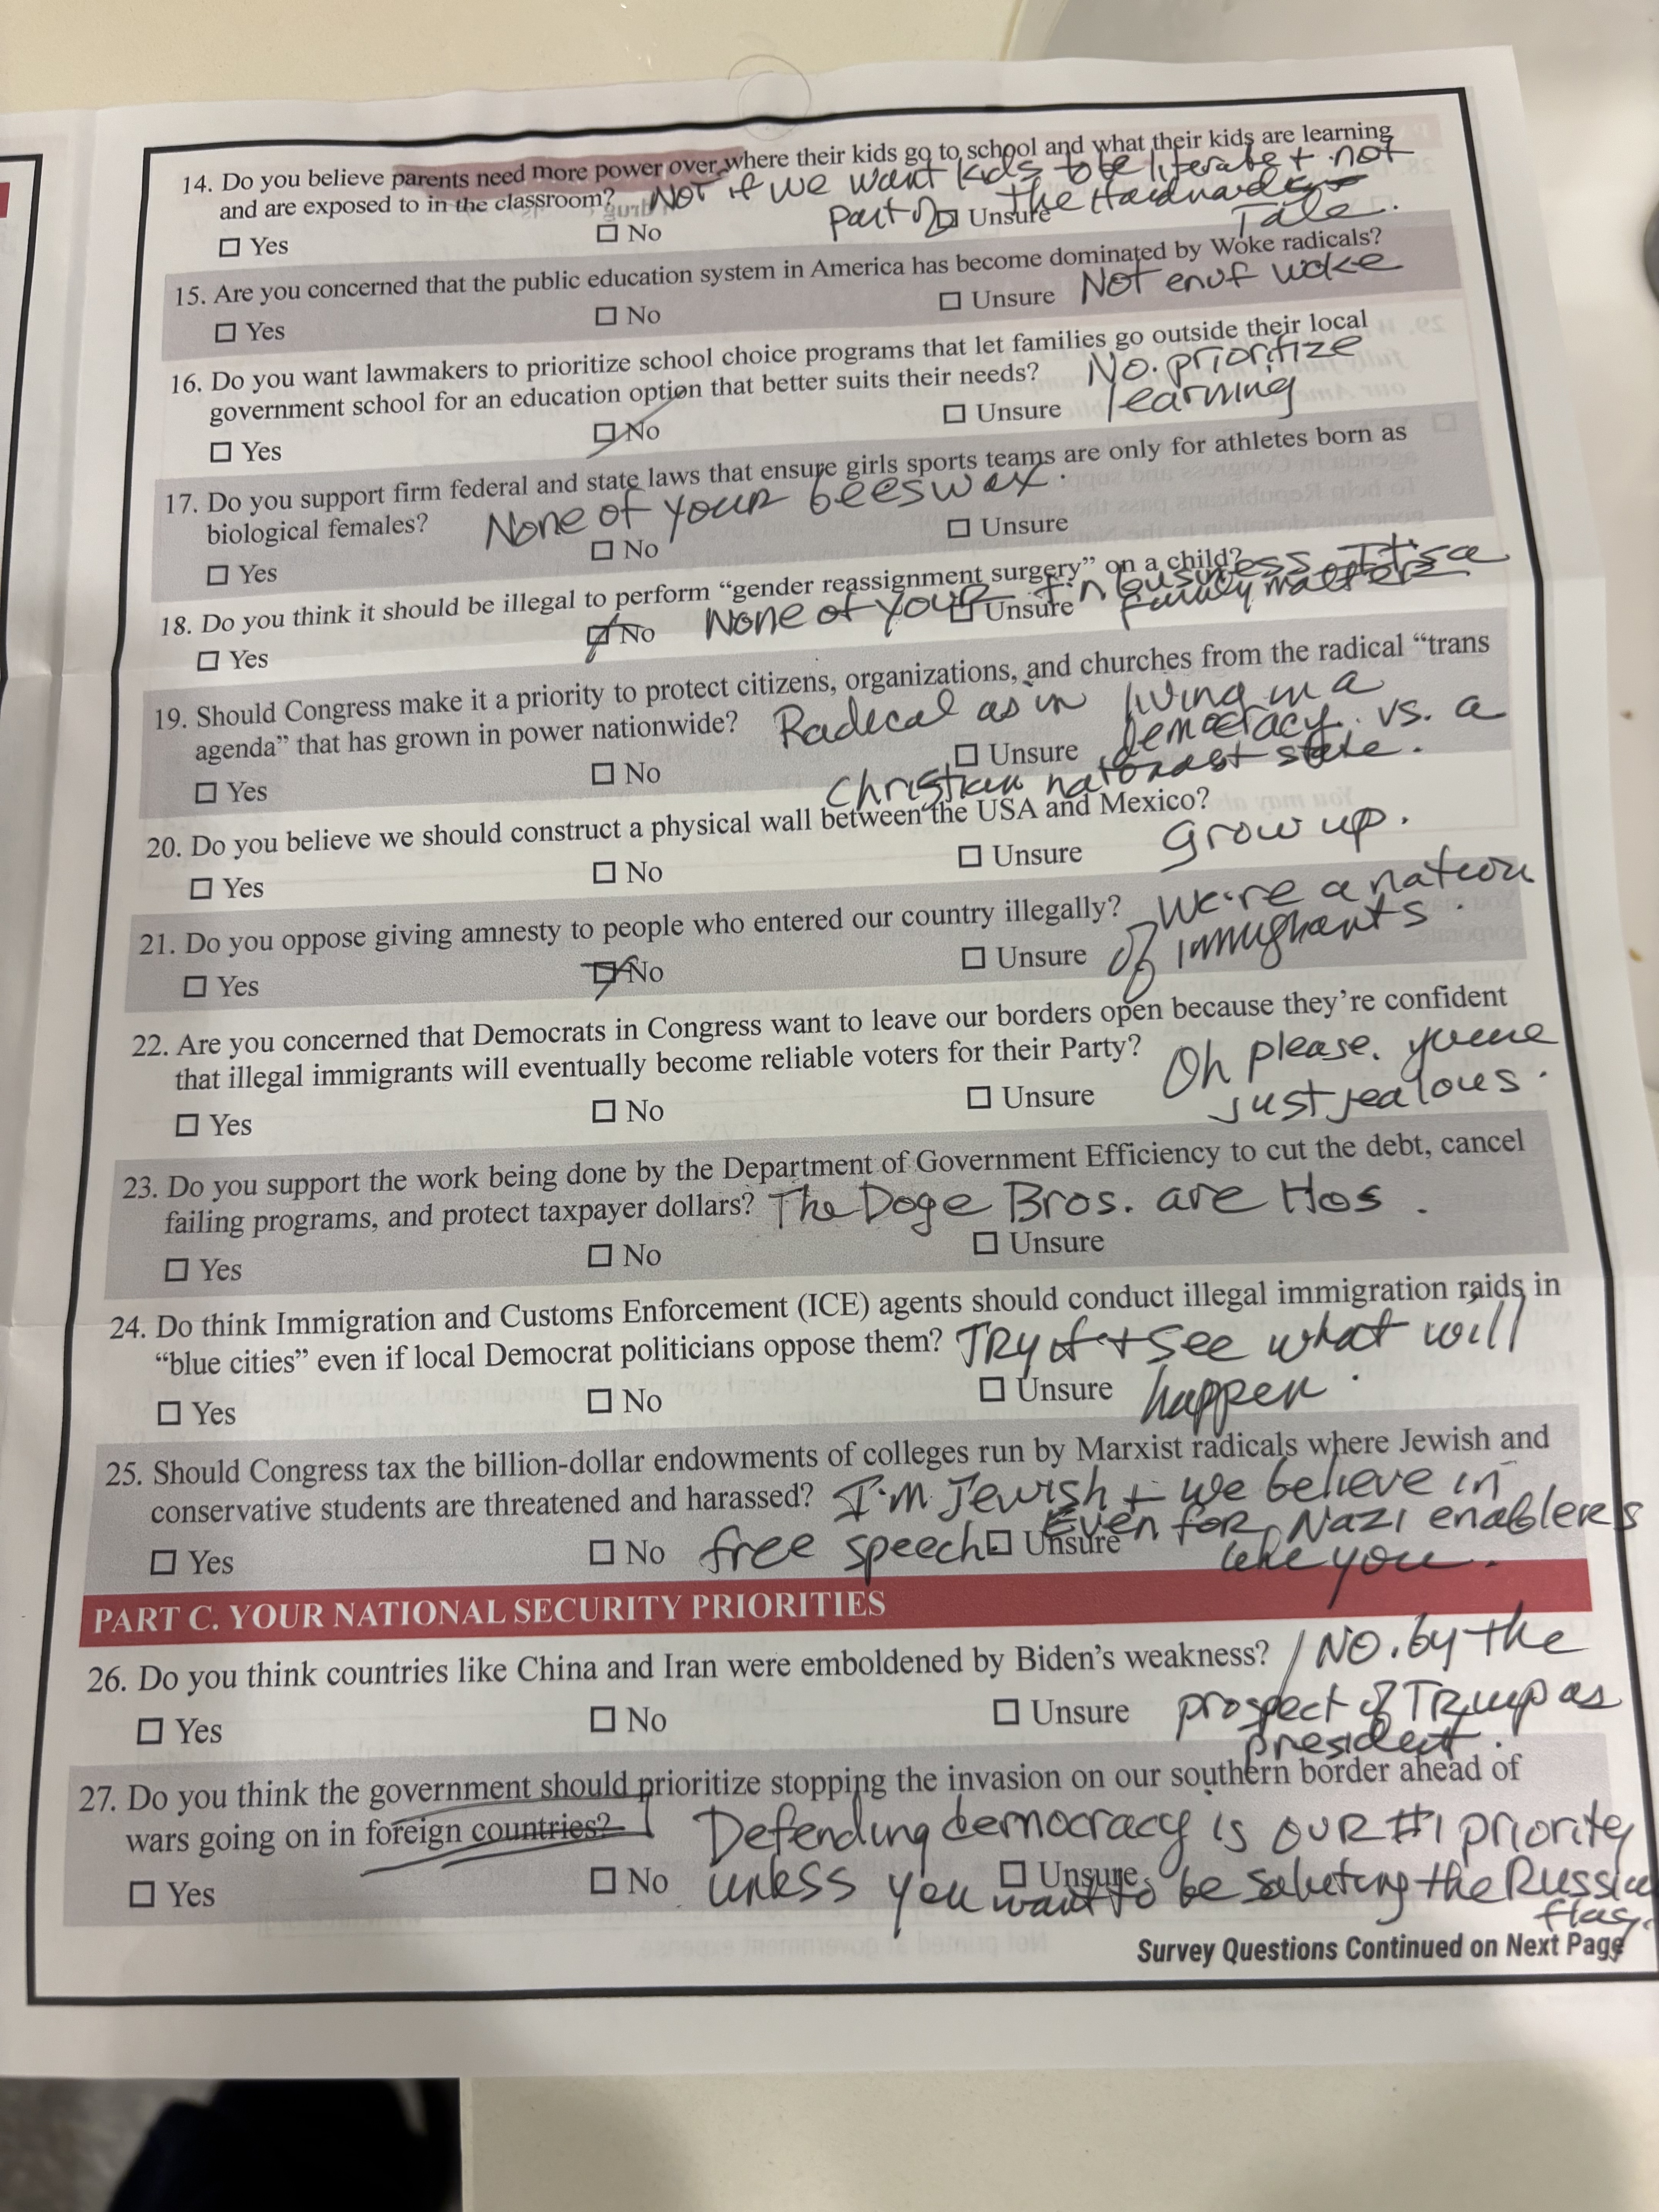 14. Do you believe parents need more power over where their kids go to school and what their kids are learning
and are exposed to in the classroom? Not if we want kids to be literate + not
part of the Handmaid's
Tale.
☐ Yes ☐ No ☐ Unsure
15. Are you concerned that the public education system in America has become dominated by Woke radicals?
☐ Yes ☐ No ☐ Unsure Not enuf woke
16. Do you want lawmakers to prioritize school choice programs that let families go outside their local
government school for an education option that better suits their needs? No. prioritize
learning
☐ Yes ☐ No ☐ Unsure
17. Do you support firm federal and state laws that ensure girls sports teams are only for athletes born as
biological females? None of your beeswax.
☐ Yes ☐ No ☐ Unsure
18. Do you think it should be illegal to perform “gender reassignment surgery” on a child?
☐ Yes ☐ No ☐ Unsure None of your f'n business. It's a
family matter
19. Should Congress make it a priority to protect citizens, organizations, and churches from the radical “trans
agenda” that has grown in power nationwide? Radical as in living in a
democracy vs. a
Christian nationalist state.
☐ Yes ☐ No ☐ Unsure
20. Do you believe we should construct a physical wall between the USA and Mexico?
☐ Yes ☐ No ☐ Unsure Grow up.
21. Do you oppose giving amnesty to people who entered our country illegally? We're a nation
of immigrants.
☐ Yes ☐ No ☐ Unsure
22. Are you concerned that Democrats in Congress want to leave our borders open because they’re confident
that illegal immigrants will eventually become reliable voters for their Party? Oh please. you're
just jealous.
☐ Yes ☐ No ☐ Unsure
23. Do you support the work being done by the Department of Government Efficiency to cut the debt, cancel
failing programs, and protect taxpayer dollars? The Doge Bros. are Hos.
☐ Yes ☐ No ☐ Unsure
24. Do think Immigration and Customs Enforcement (ICE) agents should conduct illegal immigration raids in
“blue cities” even if local Democrat politicians oppose them? Try it + see what will
happen.
☐ Yes ☐ No ☐ Unsure
25. Should Congress tax the billion-dollar endowments of colleges run by Marxist radicals where Jewish and
conservative students are threatened and harassed? I'm Jewish + we believe in
free speech Even for Nazi enablers
like you.
☐ Yes ☐ No ☐ Unsure
PART C. YOUR NATIONAL SECURITY PRIORITIES
26. Do you think countries like China and Iran were emboldened by Biden’s weakness? NO. by the
prospect of Trump as
president.
☐ Yes ☐ No ☐ Unsure
27. Do you think the government should prioritize stopping the invasion on our southern border ahead of
wars going on in foreign countries? Defending democracy is OUR #1 priority
unless you want to be saluting the Russian
flag.
☐ Yes ☐ No ☐ Unsure
Survey Questions Continued on Next Page